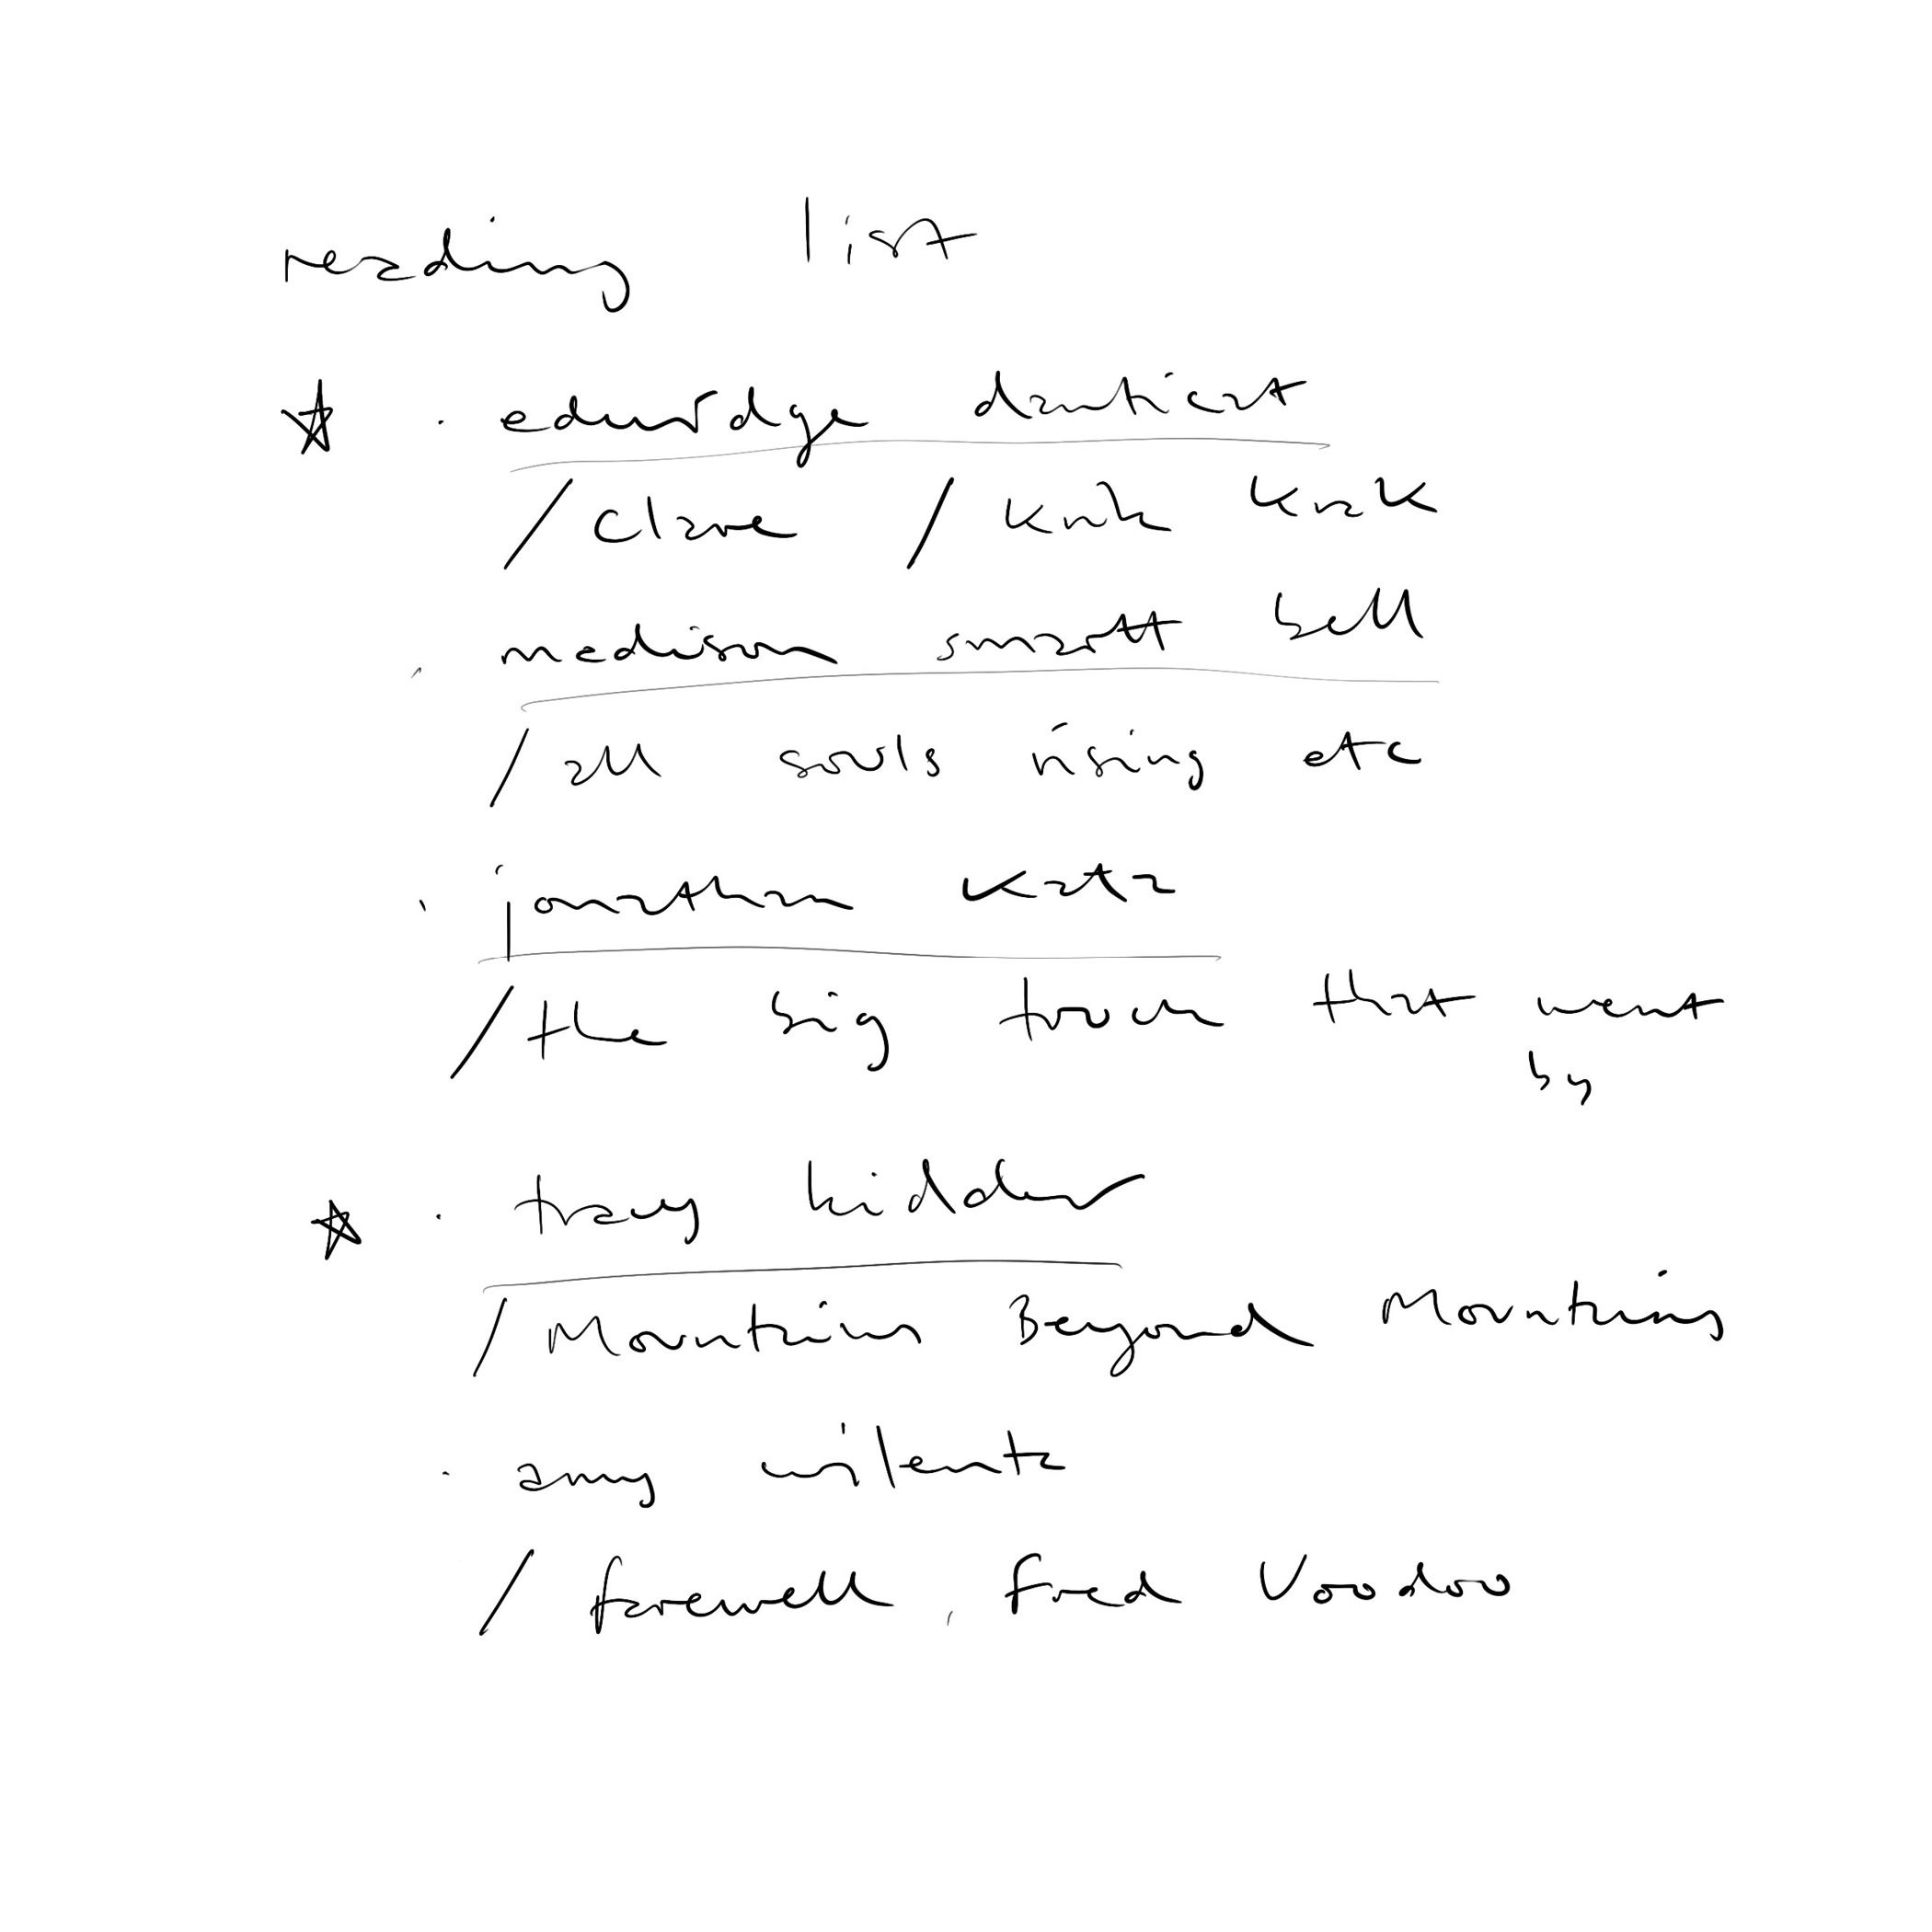 reading list
☆ · edwidge danticat
/ claire / krik krak
· madison smartt bell
/ all souls rising etc
· jonathan katz
/ the big truck that went
by
☆ · tracy kidder
/ Mountains Beyond Mountains
· amy wilentz
/ farewell, fred Voodoo